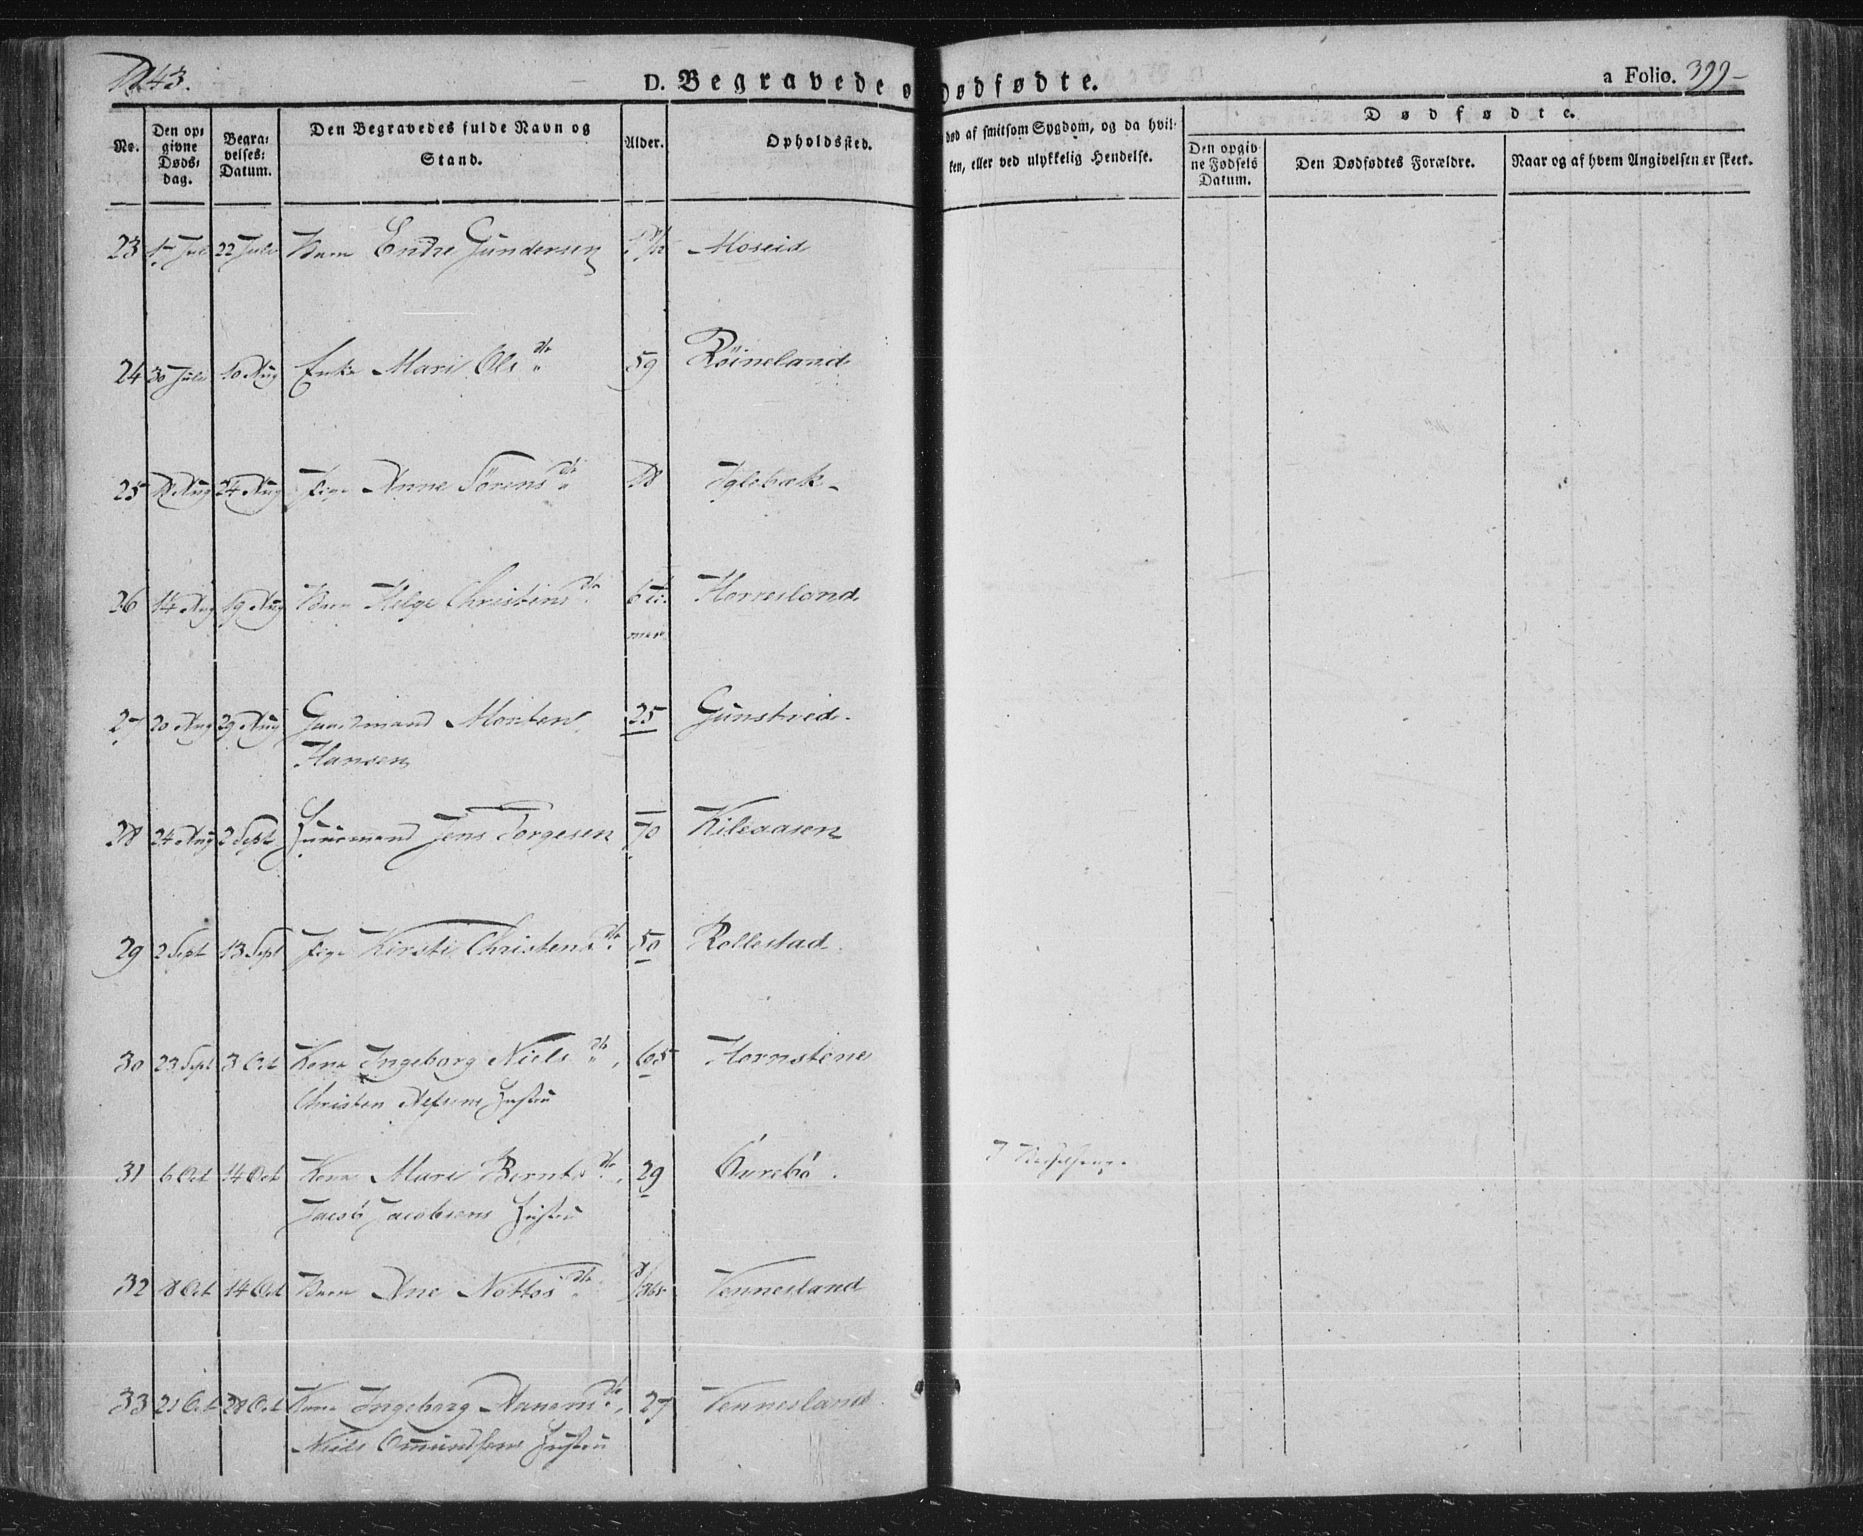 1843.
D. Begravede o Dødfødte.
a Folio. 399-
No.
Den opgivne Dødsdag.
Begravelses-Datum.
Den Begravedes fulde Navn og Stand.
Alder.
Opholdssted.
død af smitsom Sygdom, og da hvilken, eller ved ulykkelig Hendelse.
Dødfødte.
Den opgivne Fødsels Datum.
Den Dødfødtes Forældre.
Naar og af hvem Angivelsen er skeet.
23 17 Juli 22 Juli Barn Endre Gundersen Moseid
24 30 Juli 10 Aug Enke Mari Ols dtr 59 Röineland
25 18 Aug 24 Aug Pige Anne Sörens dtr 18 Iglebæk
26 14 Aug 19 Aug Barn Helge Christens dtr 6 Horresland
27 20 Aug 29 Aug Gaardmand Morten 25 Gunstved
Hansen
28 24 Aug 2 Sept Huusmand Jens Torgesen 70 Kileaasen
29 2 Sept 13 Sept Pige Kirsti Christens dtr 50 Rollestad
30 23 Sept 3 Oct Kone Ingeborg Niels dtr, 65 Hornstene
Christen Hustru
31 6 Oct 14 Oct Kone Mari Bernts dtr, 29 Aurebö
Jacob Jacobsens Hustru
I Barselseng
32 8 Oct 14 Oct Barn Ane Nottos dtr 8/365 Vennesland
33 21 Oct 28 Oct Kone Ingeborg Aanens dtr, 27 Vennesland
Niels Omundsens Hustru